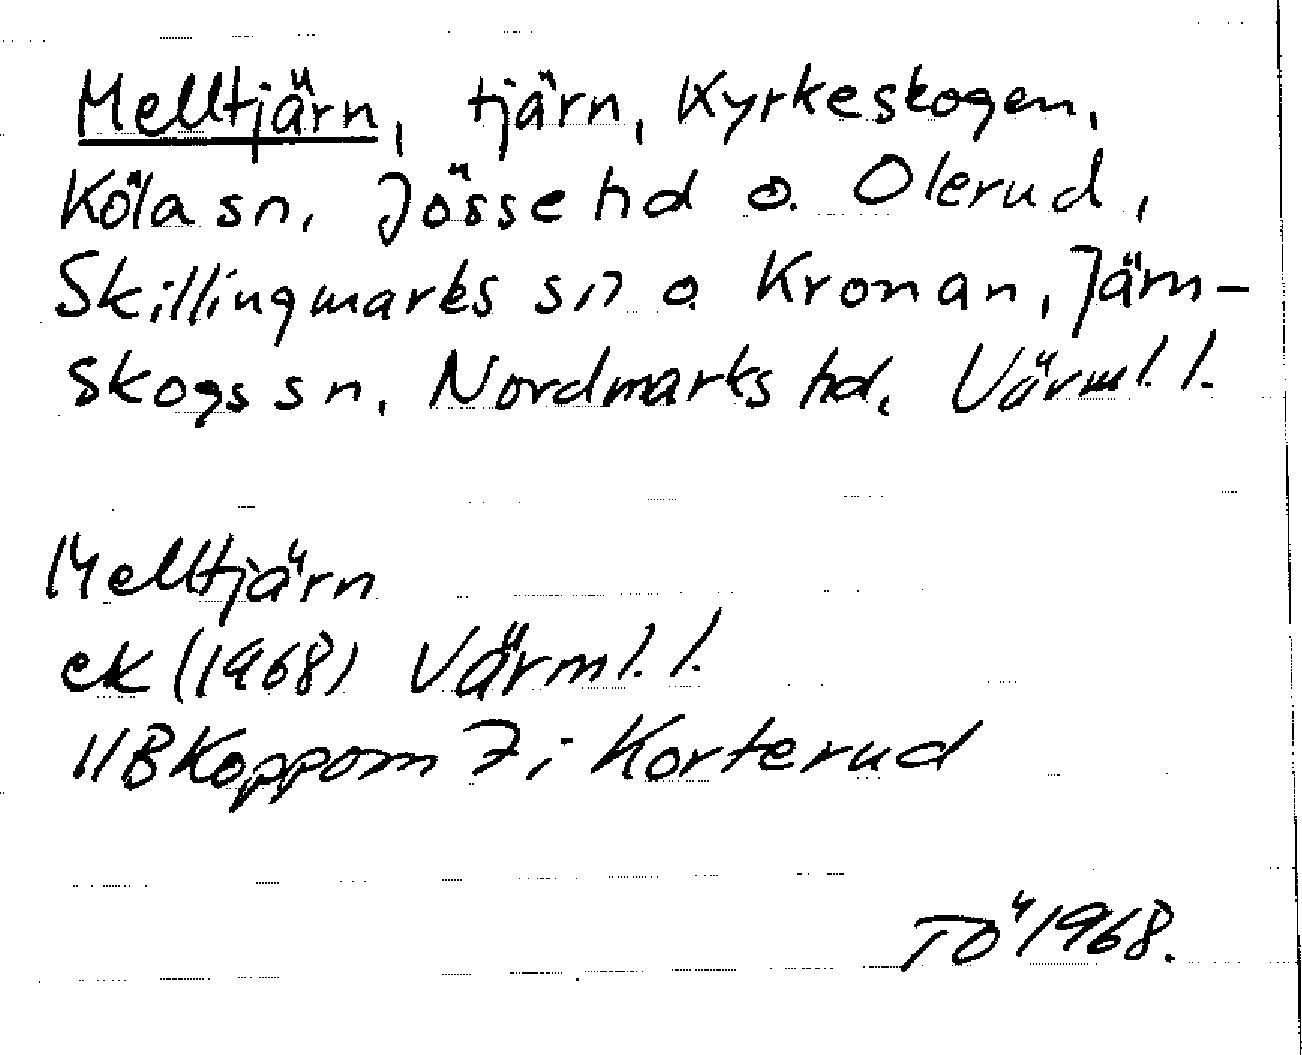 Melltjärn, tjärn, Kyrkeskogen,
Köla sn, Jösse hd o. Olerud,
Skillingmarks sn o. Kronan, Järn-
skogs sn, Nordmarks hd, Värml. l.
Melltjärn
ek (1968) Värml. l.
11B Koppom 7 i Korterud
TÖ 1968.